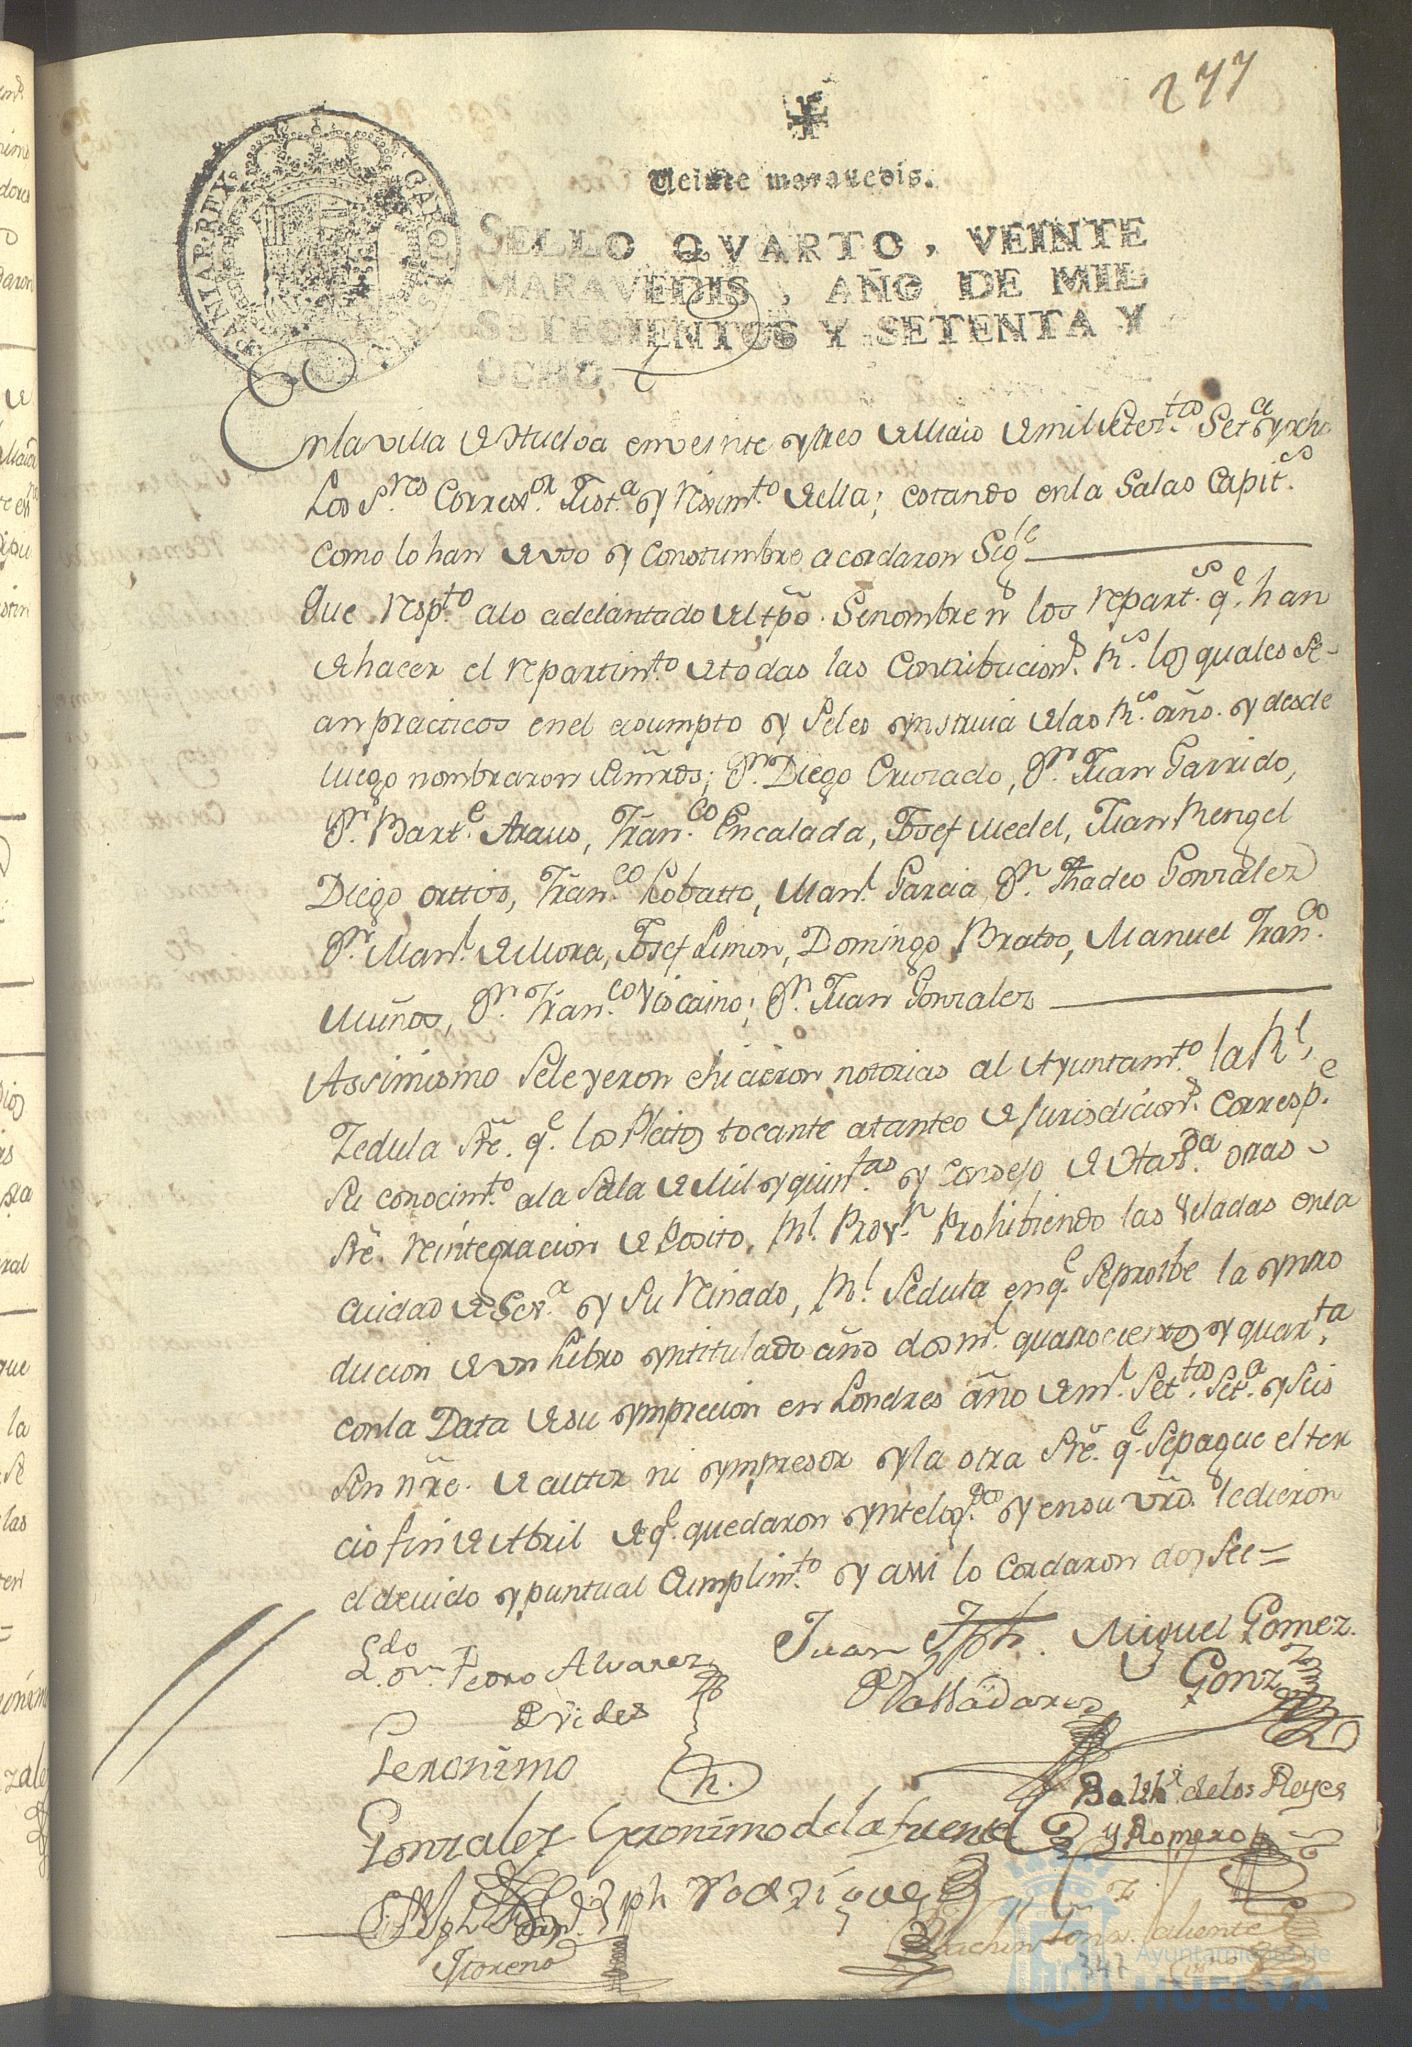 277
Veinte maravedis.
SELLO QVARTO, VEINTE
MARAVEDIS, AÑO DE MIL
SETECIENTOS Y SETENTA Y
OCHO.
CAROLUS III D G HISPANIAR REX
En la villa de Huelva en veinte y tres de Maio de mil Setez.tos Set.a y ocho
Los S.res Correx.or Just.a y Reximt.o de ella; estando en la Salas Capit.s
como lo han de uso y constumbre acordaron Sig.te
Que resp.to alo adelantado del tpo. Senombren los repart.s q.e han
de hacer el repartim.to de todas las Contribucion.s R.s los quales se-
an practicos en el asumpto y seles ynstruia de las R.s orñs. y desde
luego nombraron sus mrds; Dn. Diego Cruzado, Dn. Juan Garrido,
Dn. Bart.e Araus, Fran.co Encalada, Josef Medel, Juan Rengel
Diego Orttis, Fran.co Lobatto, Man.l Garcia, Dn. Thadeo Gonzalez
Dn. Man.l de Mora, Josef Limon, Domingo Brabo, Manuel Fran.co
Muños, Dn. Fran.co Viscaino; Dn. Juan Gonzalez
Assimismo Seleyeron e hicieron notorias al Ayuntam.to la R.l
Zedula sre. q.e los Pleitos tocante atanteo de Jurisdicion.s corresp.e
su conocim.to ala Sala de Mil y quin.tas y Consejo de Haz.da otras
sre. reintegracion de Posito, R.l Prov.n Prohibiendo las Veladas en la
ciuidad de Sev.a y su Reinado, R.l Sedula en q.e Seproibe la yntro
ducion de un Libro yntitulado año dos m.l quatrocientos y quar.ta
con la Data de su ymprecion en Londres año de m.l Set.tos Set.a y Seis
sin nre. de auttor ni ympresor y la otra sre. q.e Sepague el ter
cio fin de Abril de q.e quedaron yntelig.dos y en su vrd. ledieron
el deuido y puntual Cumplim.to y assi lo Cordaron doy fee =
L.do Dn. Pedro Alvarez
Juan Jph.
Miguel Gomez
Valladares
Gonz.z
Geronimo
Gonzalez
Geronimo de la fuente
Balth.r de los Reyes
y Romero
Jph Rodriguez
Moreno
347
Ayuntamiento de
HUELVA